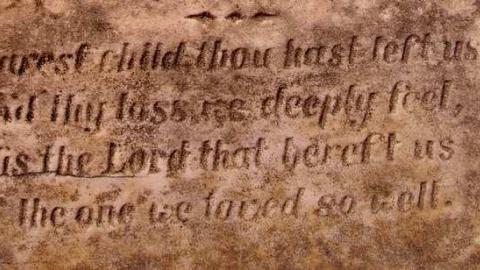 arest child thou hast left us
nd thy loss we deeply feel,
is the Lord that bereft us
The one we loved so well.